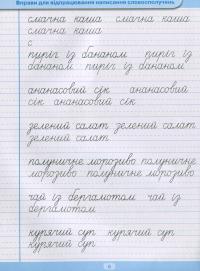 Вправи для відпрацювання написання словосполучень
смачна каша смачна каша
смачна каша
с
пиріг із бананом пиріг із
бананом пиріг із бананом
ананасовий сік ананасовий
сік ананасовий сік
зелений салат зелений салат
зелений салат
полуничне морозиво полуничне
морозиво полуничне морозиво
чай із бергамотом чай із
бергамотом
курячий суп курячий суп
курячий суп